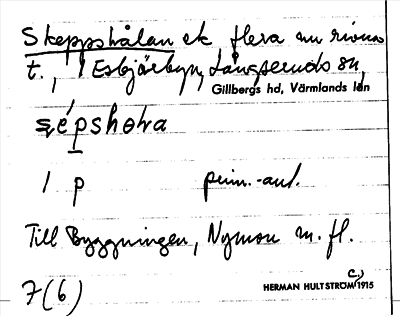 Skeppshålan ek flera nu rivna
t., i Esbjörbyn, Långseruds sn,
Gillbergs hd, Värmlands län
ʂépshoɩa
/ p prim.-aul.
Till Byggningen, Nymon m. fl.
7(6)
HERMAN HULTSTRÖM C.) 1915